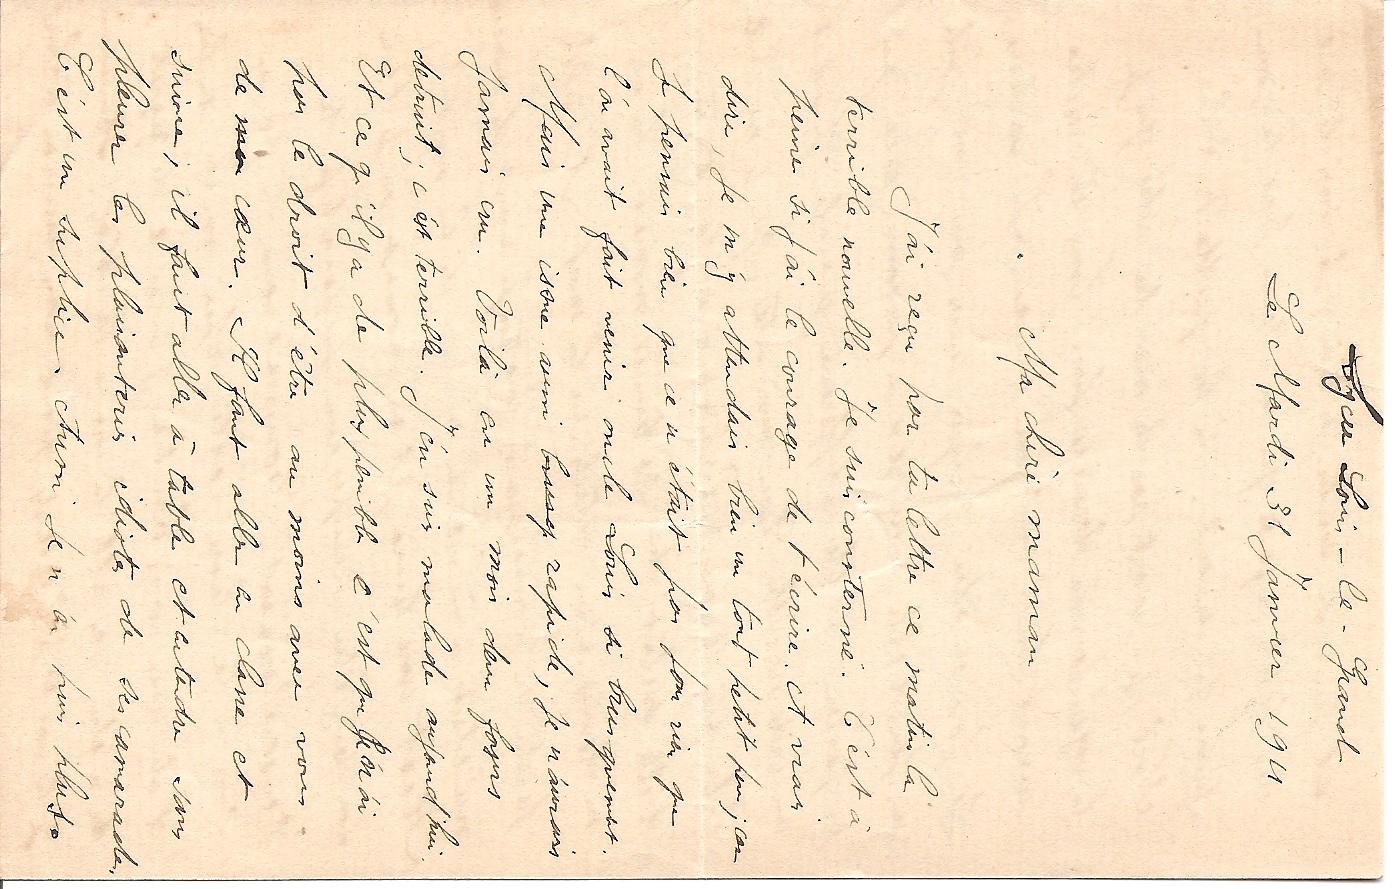 Lycée Louis-le-Grand
Le Mardi 31 Janvier 1911
Ma chère maman
J'ai reçu par ta lettre ce matin la
terrible nouvelle. Je suis consterné. C'est à
peine si j'ai le courage de t'écrire. A vrai
dire, je m'y attendais bien un tout petit peu, car
je pensais bien que ce n'était pas pour rien que
l'on avait fait venir oncle Louis si brusquement.
Mais une issue aussi rapide, je n'aurais
jamais cru. Voilà en un mois deux foyers
detruits, c'est terrible. J'en suis malade aujourd'hui.
Et ce qu'il y a de plus penible c'est que je n'ai
pas le droit d'être au moins avec vous
de coeur. Il faut aller en classe et
suivre, il faut aller à table et entendre sans
pleurer les plaisanteries idiotes de ses camarades.
C'est un supplice. Aussi je n'en puis plus.